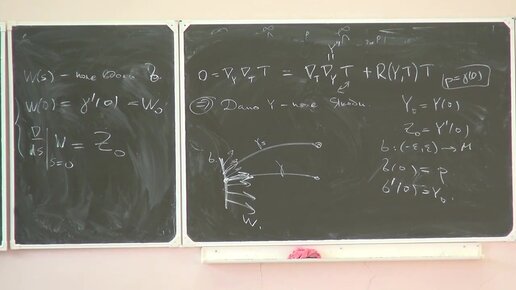 W(s) – поле вдоль b.
W(0) = γ'(0) = W₀.
∇/ds |_{s=0} W = Z₀
Y''
0 = ∇_Y ∇_T T = ∇_T ∇_Y T + R(Y,T)T
p = γ(0)
⇒) Дано Y – поле Якоби.
Y₀ = Y(0)
Z₀ = Y'(0)
b: (-ε, ε) → M
b(0) = p
b'(0) = Y₀.
b
γ_s
γ
W.